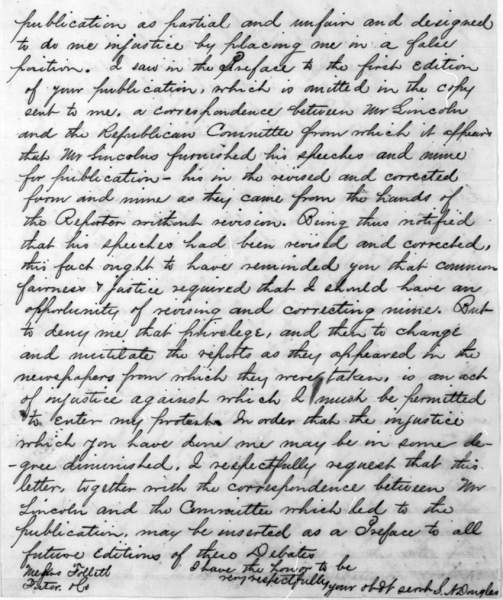 publication as partial and unfair and designed
to do me injustice by placing me in a false
position. I saw in the Preface to the first edition
of your publication, which is omitted in the copy
sent to me, a correspondence between Mr Lincoln
and the Republican Committee from which it appears
that Mr Lincolns furnished his speeches and mine
for publication – his in the revised and corrected
form and mine as they came from the hands of
the Reporter without revision. Being thus notified
that his speeches had been revised and corrected,
this fact ought to have reminded you that common
fairness & Justice required that I should have an
opportunity of revising and correcting mine. But
to deny me that privelege, and then to change
and mutilate the reports as they appeared in the
newspapers from which they were taken, is an act
of injustice against which I must be permitted
to enter my protest. In order that the injustice
which you have done me may be in some de-
-gree diminished, I respectfully request that this
letter, together with the correspondence between Mr
Lincoln and the Committee which led to the
publication, may be inserted as a Preface to all
future Editions of these Debates
I have the honor to be
very respectfully
your obdt servt S. A Douglas
Messrs Follett
Foster &c